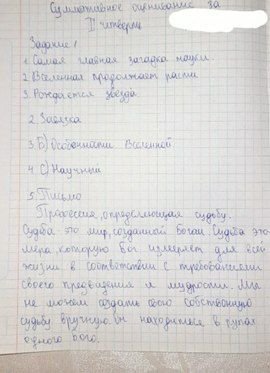 Суммативное оценивание за
II четверть
Задание 1
1. Самая главная загадка науки
2 Вселенная продолжает расти
3. Рождается звезда
2. Завязка
3 Б) Особенности Вселенной
4 С) Научный
5. Письмо
Профессия, определяющая судьбу.
Судьба это мир, созданной богом Судьба это
мера, которую Бог измеряет для всей
жизни в соответствии с требованиями
своего провидения и мудрости. Мы
не можем создать свою собственную
судьбу вручную. Он находиться в руках
одного Бога.